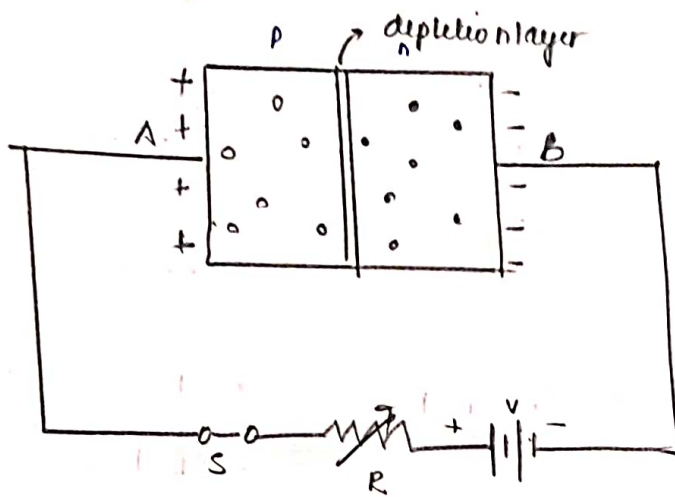 p
depletion layer
n
+
+
A
+
+
-
-
B
-
-
-
S
R
+
V
-